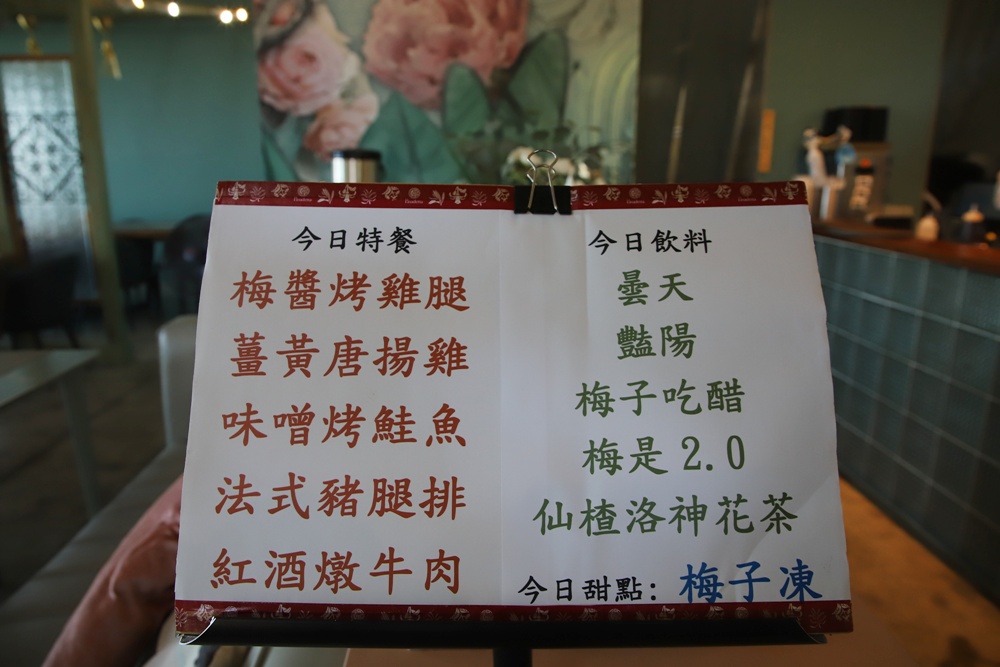 今日特餐
梅醬烤雞腿
薑黃唐揚雞
味噌烤鮭魚
法式豬腿排
紅酒燉牛肉
今日飲料
曇天
豔陽
梅子吃醋
梅是2.0
仙楂洛神花茶
今日甜點：梅子凍